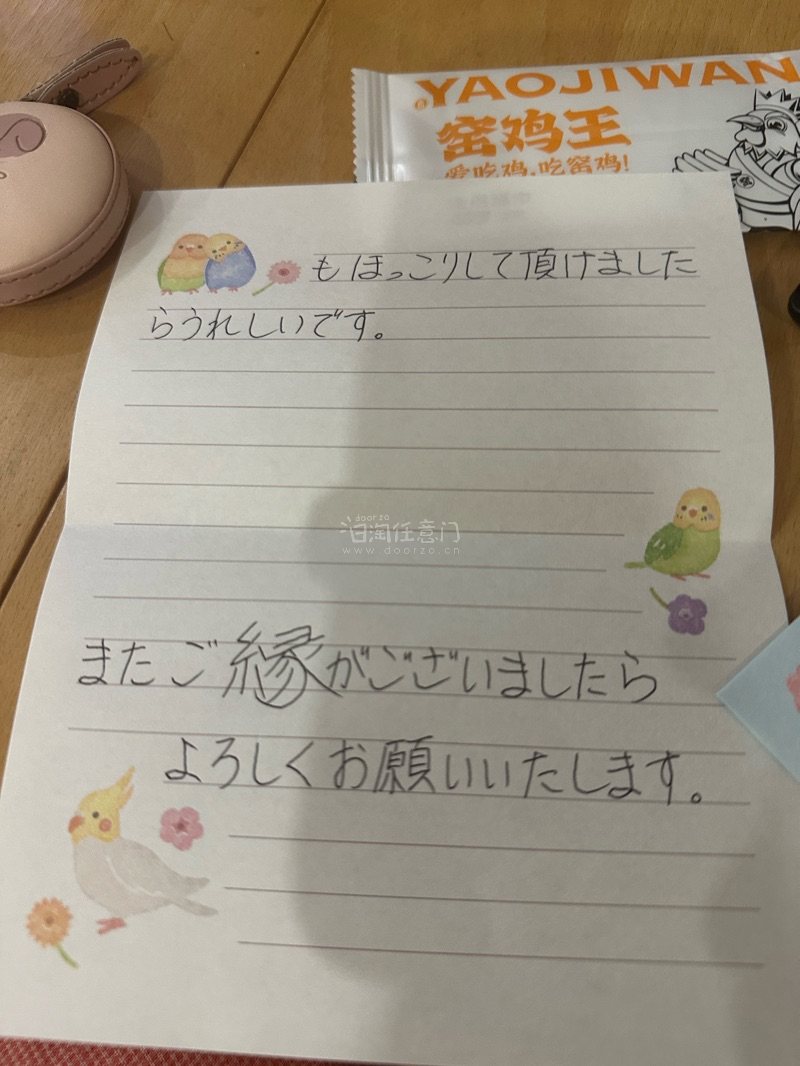 YAOJIWAN
窑鸡王
爱吃鸡,吃窑鸡!
もほっこりして頂けました
らうれしいです。
doorzo
日淘任意门
www.doorzo.cn
またご縁がございましたら
よろしくお願いいたします。